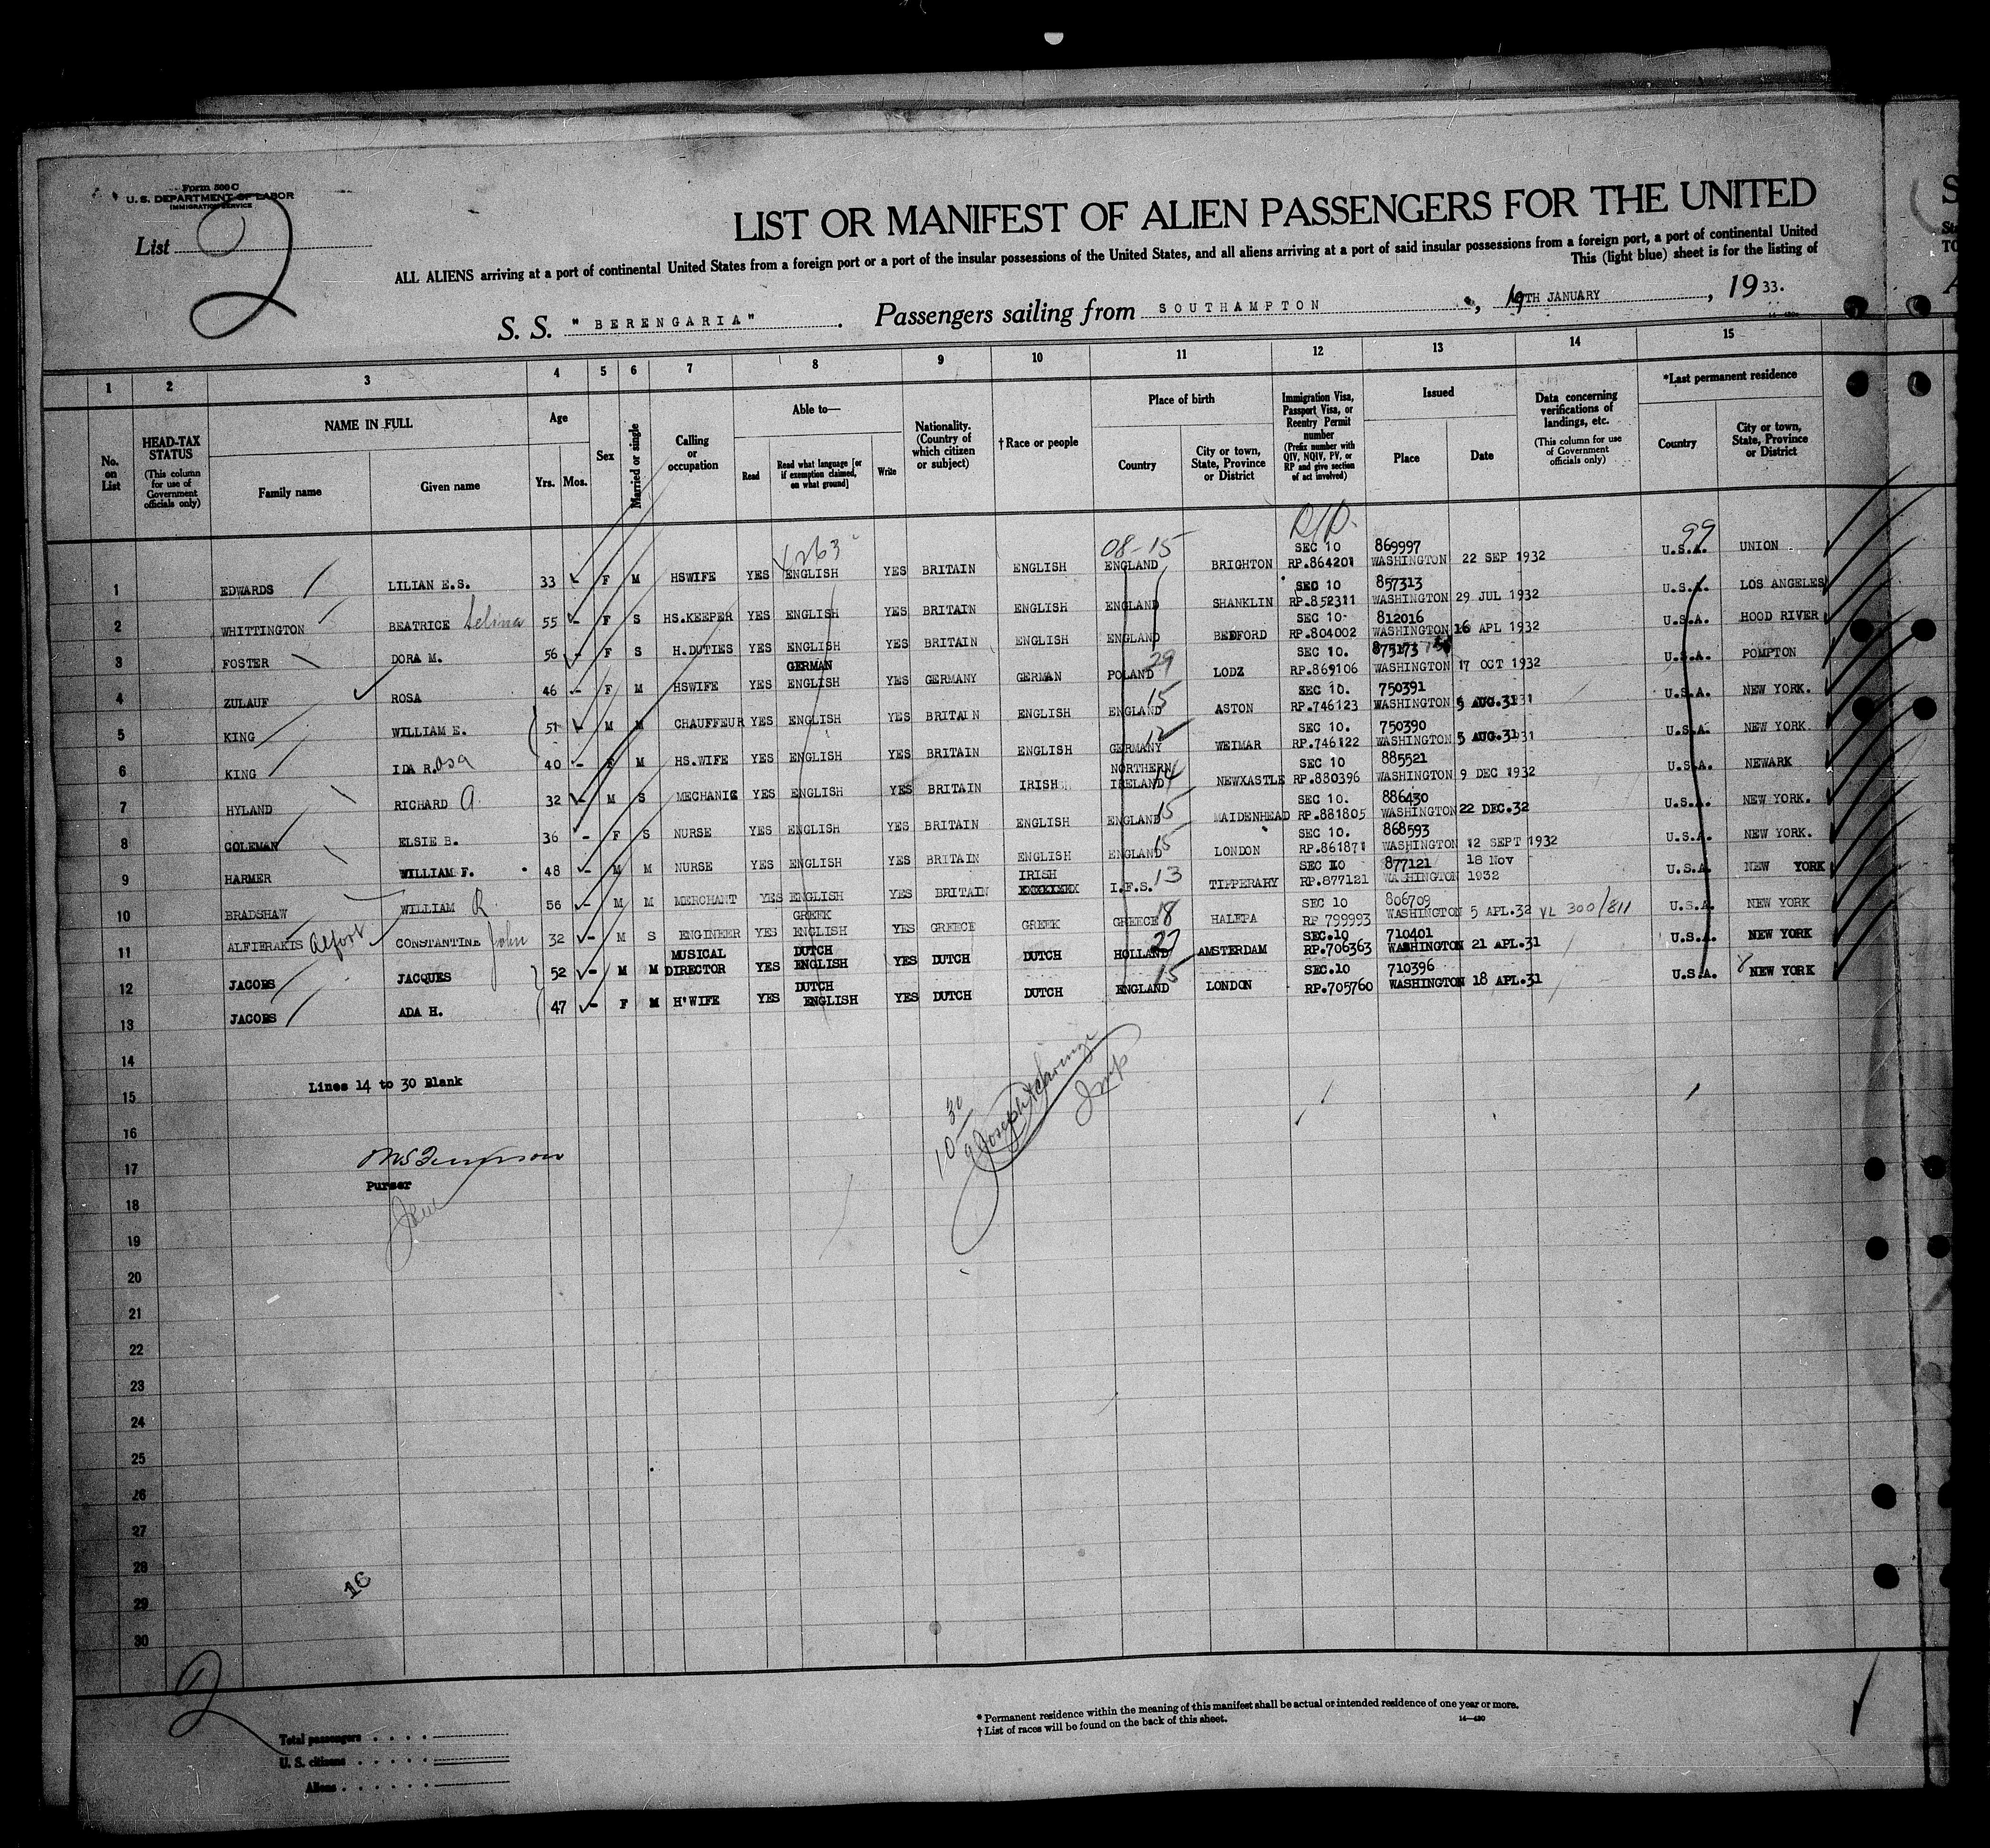 Form 500 C
U. S. DEPARTMENT OF LABOR
IMMIGRATION SERVICE
List 2
LIST OR MANIFEST OF ALIEN PASSENGERS FOR THE UNITED
ALL ALIENS arriving at a port of continental United States from a foreign port or a port of the insular possessions of the United States, and all aliens arriving at a port of said insular possessions from a foreign port, a port of continental United
This (light blue) sheet is for the listing of
S. S. "BERENGARIA". Passengers sailing from SOUTHAMPTON, TH JANUARY, 1933.
1 2 3 4 5 6 7 8 9 10 11 12 13 14 15
No. on List
HEAD-TAX STATUS (This column for use of Government officials only)
NAME IN FULL
Family name Given name
Age
Yrs. Mos.
Sex
Married or single
Calling or occupation
Able to—
Read Read what language [or if exemption claimed, on what ground] Write
Nationality. (Country of which citizen or subject)
†Race or people
Place of birth
Country City or town, State, Province or District
Immigration Visa, Passport Visa, or Reentry Permit number (Prefix number with QIV, NQIV, PV, or RP and give section of act involved)
Issued
Place Date
Data concerning verifications of landings, etc. (This column for use of Government officials only)
*Last permanent residence
Country City or town, State, Province or District
1 EDWARDS LILIAN E.S. 33 - F M HSWIFE YES ENGLISH YES BRITAIN ENGLISH 08-15 ENGLAND BRIGHTON SEC 10 RP.864201 869997 WASHINGTON 22 SEP 1932 99 U.S.A. UNION
2 WHITTINGTON BEATRICE Selina 55 - F S HS.KEEPER YES ENGLISH YES BRITAIN ENGLISH ENGLAND SHANKLIN SEC 10 RP.852311 857313 WASHINGTON 29 JUL 1932 U.S.A. LOS ANGELES
3 FOSTER DORA M. 56 - F S H.DUTIES YES ENGLISH YES BRITAIN ENGLISH ENGLAND BEDFORD SEC 10- RP.804002 812016 WASHINGTON 16 APL 1932 U.S.A. HOOD RIVER
4 ZULAUF ROSA 46 - F M HSWIFE YES GERMAN ENGLISH YES GERMANY GERMAN POLAND 29 LODZ SEC 10. RP.869106 875173 WASHINGTON 17 OCT 1932 U.S.A. POMPTON
5 KING WILLIAM E. 51 - M M CHAUFFEUR YES ENGLISH YES BRITAIN ENGLISH ENGLAND 15 ASTON SEC 10. RP.746123 750391 WASHINGTON 5 AUG.31 U.S.A. NEW YORK.
6 KING IDA Rosa 40 - F M HS.WIFE YES ENGLISH YES BRITAIN ENGLISH GERMANY 12 WEIMAR SEC 10. RP.746122 750390 WASHINGTON 5 AUG.31 U.S.A. NEW YORK.
7 HYLAND RICHARD A. 32 - M S MECHANIC YES ENGLISH YES BRITAIN IRISH NORTHERN IRELAND 14 NEWXASTLE SEC 10 RP.880396 885521 WASHINGTON 9 DEC 1932 U.S.A. NEWARK
8 COLEMAN ELSIE B. 36 - F S NURSE YES ENGLISH YES BRITAIN ENGLISH ENGLAND 15 MAIDENHEAD SEC 10. RP.881805 886430 WASHINGTON 22 DEC.32 U.S.A. NEW YORK.
9 HARMER WILLIAM F. 48 - M M NURSE YES ENGLISH YES BRITAIN ENGLISH ENGLAND 15 LONDON SEC 10. RP.861871 868593 WASHINGTON 12 SEPT 1932 U.S.A. NEW YORK.
10 BRADSHAW WILLIAM R 56 - M M MERCHANT YES ENGLISH YES BRITAIN IRISH I.F.S. 13 TIPPERARY SEC 10 RP.877121 877121 WASHINGTON 18 Nov 1932 U.S.A. NEW YORK
11 ALFIERAKIS Alfort CONSTANTINE John 32 - M S ENGINEER YES GREEK ENGLISH YES GREECE GREEK GREECE 18 HALEPA SEC 10 RP 799993 806709 WASHINGTON 5 APL.32 VL 300/811 U.S.A. NEW YORK
12 JACOBS JACQUES 52 - M M MUSICAL DIRECTOR YES DUTCH ENGLISH YES DUTCH DUTCH HOLLAND 27 AMSTERDAM SEC.10 RP.706363 710401 WASHINGTON 21 APL.31 U.S.A. NEW YORK
13 JACOBS ADA H. 47 - F M H'WIFE YES DUTCH ENGLISH YES DUTCH DUTCH ENGLAND 15 LONDON SEC.10 RP.705760 710396 WASHINGTON 18 APL.31 U.S.A. NEW YORK
14
Lines 14 to 30 Blank
15
16
17
Purser
18
19
20
21
22
23
24
25
26
27
28
16
29
30
2
Total passengers
U. S. citizens
Aliens
* Permanent residence within the meaning of this manifest shall be actual or intended residence of one year or more.
† List of races will be found on the back of this sheet.
14—420